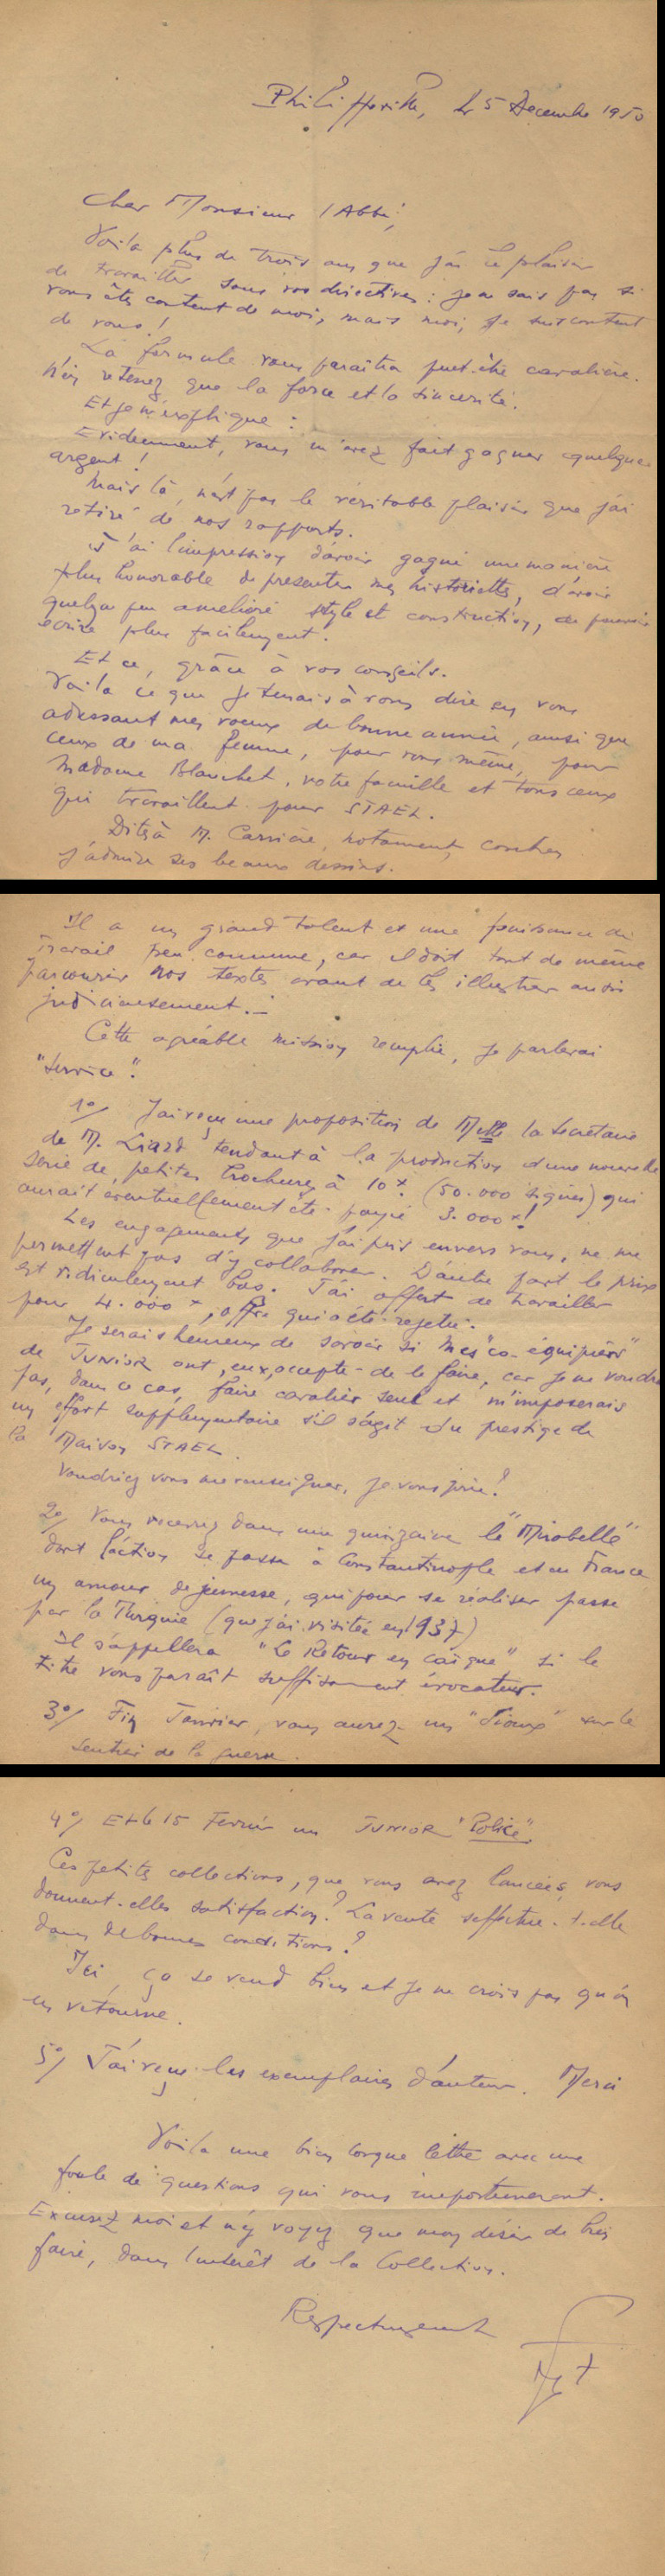 Philippeville, le 5 Décembre 1950
Cher Monsieur l'Abbé,
Voilà plus de trois ans que j'ai le plaisir
de travailler sous vos directives : je ne sais pas si
vous êtes content de moi, mais moi, je suis content
de vous !
La formule vous paraîtra peut-être cavalière.
N'en retenez que la force et la sincérité.
Et je m'explique :
Evidemment, vous m'avez fait gagner quelque
argent !
Mais là, n'est pas le véritable plaisir que j'ai
retiré de nos rapports.
J'ai l'impression d'avoir gagné une manière
plus honorable de présenter mes historiettes, d'avoir
quelque peu amélioré style et construction, de pouvoir
écrire plus facilement.
Et ce, grâce à vos conseils.
Voilà ce que je tenais à vous dire en vous
adressant mes voeux de bonne année, ainsi que
ceux de ma femme, pour vous même, pour
Madame Blanchet, votre famille et tous ceux
qui travaillent pour STAEL.
Dites à M. Carrière, notament, combien
j'admire ses beaux dessins.
Il a un grand talent et une puissance de
travail peu commune, car il doit tout de même
parcourir nos textes avant de les illustrer aussi
judicieusement. -
Cette agréable mission remplie, je parlerai
"service".
1°/ J'ai reçu une proposition de Melle la Secrétaire
de M. Liard tendant à la production d'une nouvelle
série de petites brochures à 10 x. (50.000 signes) qui
aurait éventuellement été payée 3.000 x !
Les engagements que j'ai pris envers vous, ne me
permettent pas d'y collaborer. D'autre part le prix
est ridiculement bas. J'ai offert de travailler
pour 4.000 x, offre qui a été rejetée.
Je serais heureux de savoir si mes "co-équipiers"
de JUNIOR ont, eux, accepté de le faire, car je ne voudrais
pas, dans ce cas, faire cavalier seul et m'imposerais
un effort supplémentaire s'il s'agit du prestige de
la Maison STAEL.
Voudriez vous me renseigner, je vous prie ?
2°/ Vous recevrez dans une quinzaine le "Mirabelle"
dont l'action se passe à Constantinople et en France
un amour de jeunesse, qui pour se réaliser passe
par la Turquie (que j'ai visitée en 1937)
Il s'appellera "Le Retour en Caïque" si le
titre vous paraît suffisamment évocateur.
3°/ Fin Janvier, vous aurez un "Sioux" sur le
sentier de la guerre.
4°/ Et le 15 Février un JUNIOR "Police".
Ces petites collections, que vous avez lancées, vous
donnent-elles satisfaction ? La vente s'effectue-t-elle
dans de bonnes conditions ?
Ici, ça se vend bien et je ne crois pas qu'on
en retourne.
5°/ J'ai reçu les exemplaires d'auteur. Merci
Voilà une bien longue lettre avec une
foule de questions qui vous importuneront.
Excusez moi et n'y voyez que mon désir de bien
faire, dans l'intérêt de la Collection.
Respectueusement